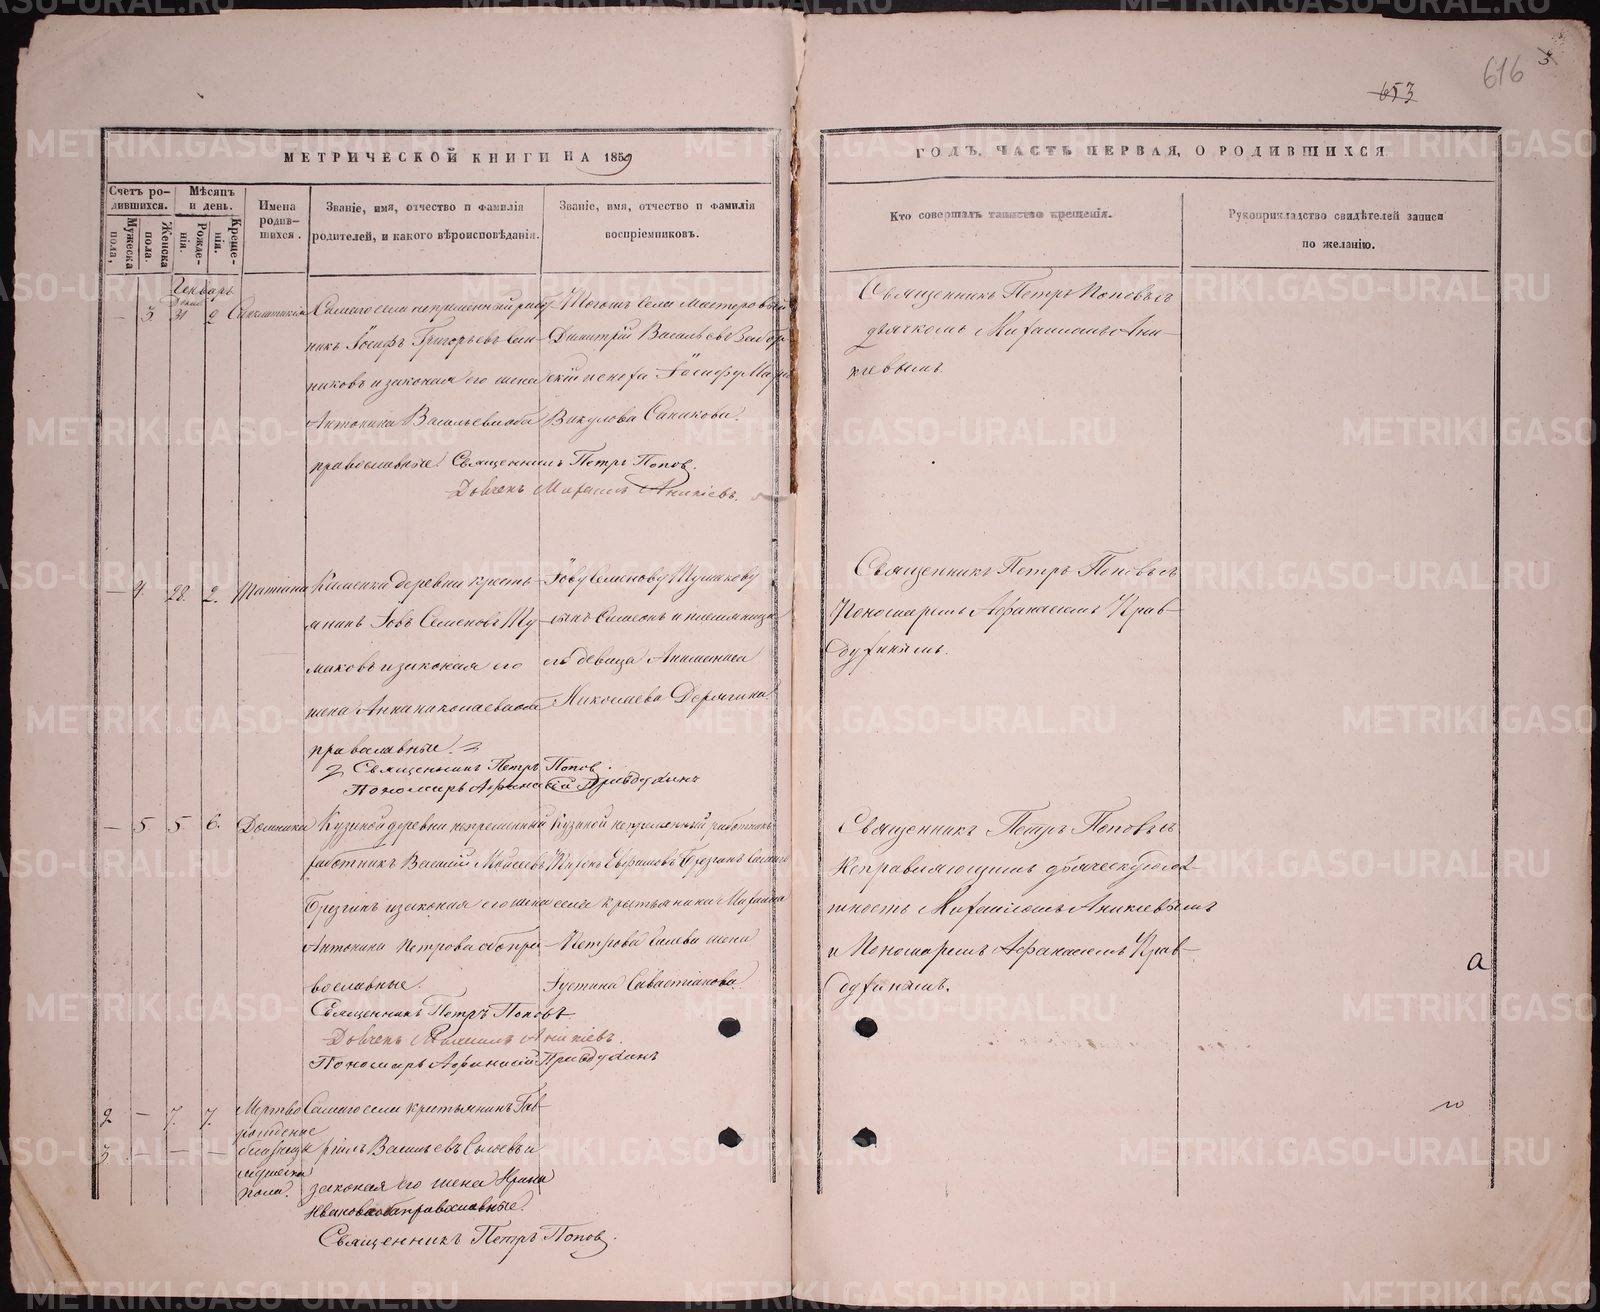 616
653
МЕТРИЧЕСКОЙ КНИГИ НА 1859
ГОДЪ, ЧАСТЬ ПЕРВАЯ, О РОДИВШИХСЯ
Счетъ ро-
дившихся.
Мужеска
пола.
Женска
пола.
Мѣсяцъ
и день.
Рожде-
нія.
Креще-
нія.
Имена
родив-
шихся.
Званіе, имя, отчество и фамилія
родителей, и какого вѣроисповѣданія.
Званіе, имя, отчество и фамилія
воспріемниковъ.
Кто совершалъ таинство крещенія.
Рукоприкладство свидѣтелей записи
по желанію.
Генварь
— 3. 31 2
Самаго села непремѣнный работ-
никъ Іосифъ Григорьевъ
и законная его жена
Антонина Васильева оба
православные. Священникъ Петръ Попов.
Михаилъ Аникіевъ.
Тогожъ села мастеровый
Димитрій Васильевъ
Вакулова Санникова.
Священникъ Петръ Поповъ съ
дьячкомъ Михаиломъ Ани-
кіевымъ.
— 4. 28. 2. Татіана
Каменки деревни кресть-
янинъ Іовъ Семеновъ Шу-
маковъ и законная его
жена Анна Николаева оба
православные.
Священникъ Петръ Попов.
Пономарь Афанасій Правдухинъ
Іову Семенову Шумакову
сынъ Симеонъ и племянница
его девица
Николаева Дерягина.
Священникъ Петръ Поповъ съ
Пономаремъ Афанасіемъ Прав-
духинымъ.
— 5 5. 6. Домника
Кузиной деревни непременный
работникъ Василій Моисеевъ
Брезгинъ и законная его жена
Антонина Петрова оба пра-
вославные.
Священникъ Петръ Поповъ
Михаилъ Аникіевъ.
Пономарь Афанасій Правдухинъ
Кузиной непремѣнный работникъ
Ефрамовъ Брезгинъ самаго
села крестьянина Михаила
Петрова жена
Іустина Савастіанова.
Священникъ Петръ Поповъ съ
Исправляющимъ дьяческую долж-
ность Михаиломъ Аникіевымъ
и Пономаремъ Афанасіемъ Прав-
духинымъ.
2 — 7. 7.
3. — — —
Мертво
рожденые
близнецы
мужеска
пола.
Самаго села крестьянинъ Гав-
рілъ Васильевъ Сысоевъ и
законная его жена Ирина
Иванова оба православные.
Священникъ Петръ Попов.
METRIKI.GASO-URAL.RU